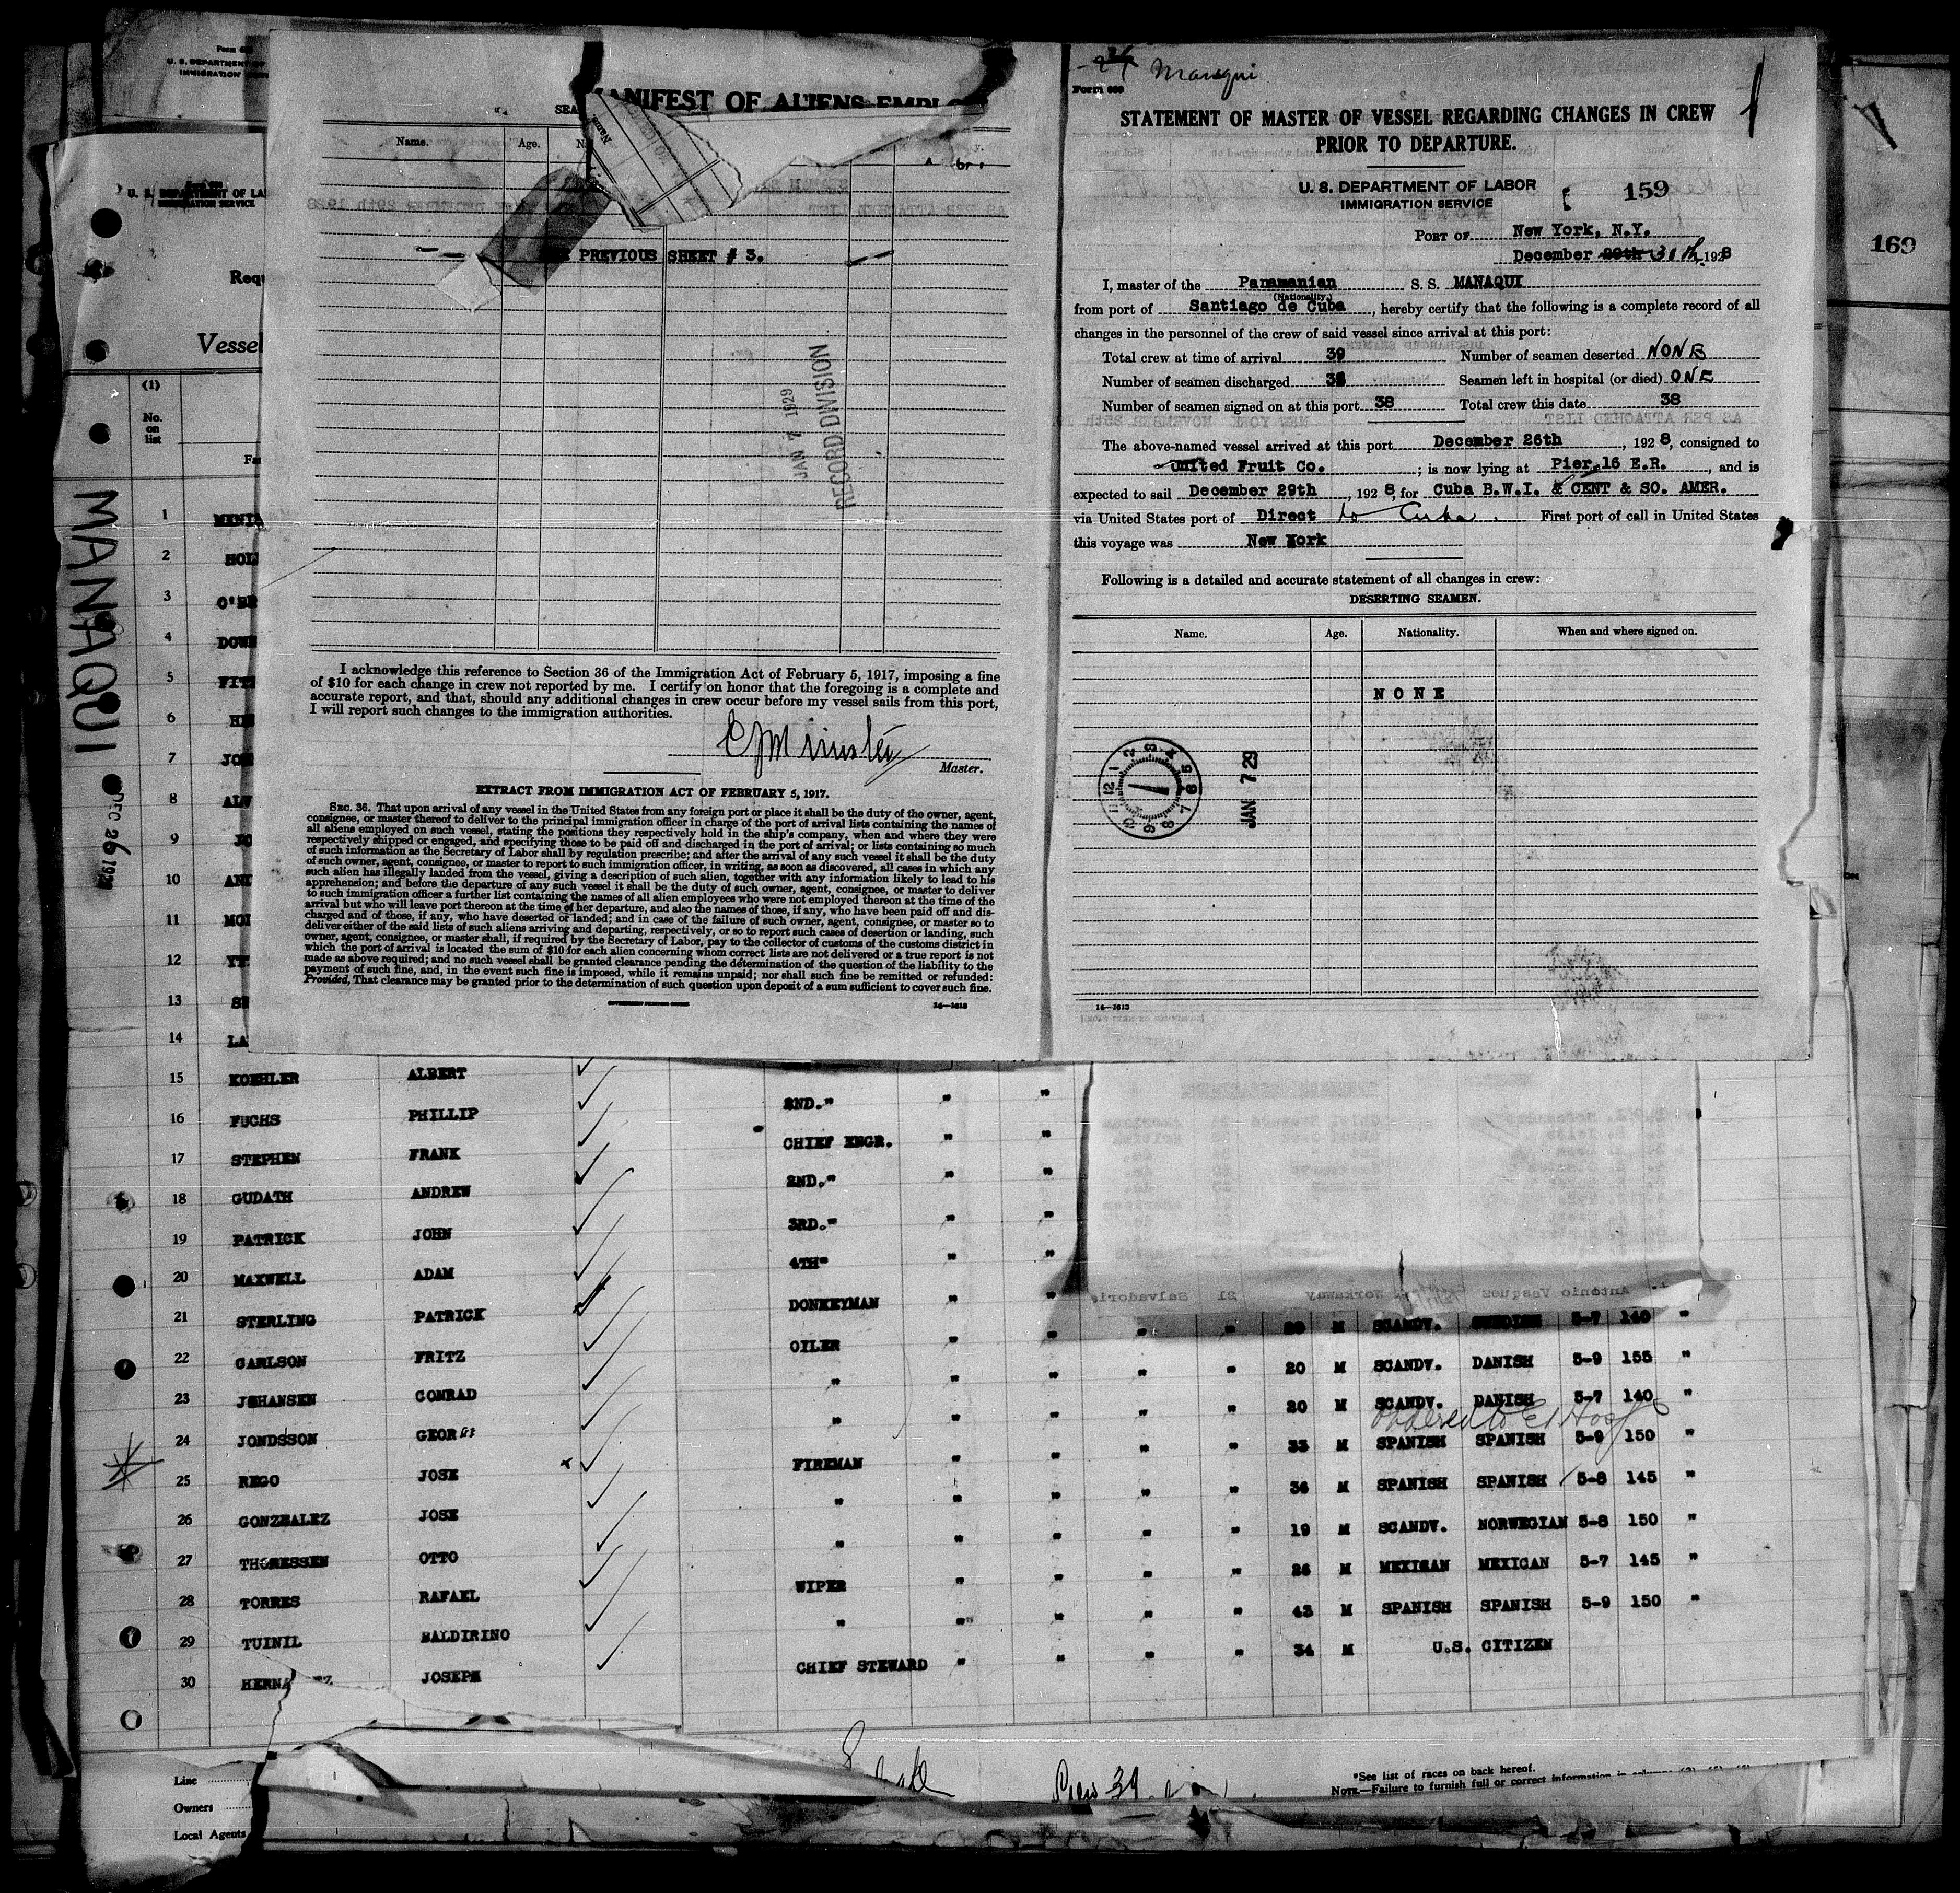 Form 6
U. S. DEPARTMENT OF
IMMIGRATION
U. S. DEPARTMENT OF LA
IMMIGRATION SERVICE
Req
Vessel
(1)
No.
on
list
MANAQUI
DEC 26 192
ANIFEST OF ALIENS EMPLO
SEA
Name.
Age.
N
Name.
PREVIOUS SHEET # 3.
JAN 7 1929
RECORD DIVISION
I acknowledge this reference to Section 36 of the Immigration Act of February 5, 1917, imposing a fine
of $10 for each change in crew not reported by me. I certify on honor that the foregoing is a complete and
accurate report, and that, should any additional changes in crew occur before my vessel sails from this port,
I will report such changes to the immigration authorities.
Master.
EXTRACT FROM IMMIGRATION ACT OF FEBRUARY 5, 1917.
SEC. 36. That upon arrival of any vessel in the United States from any foreign port or place it shall be the duty of the owner, agent,
consignee, or master thereof to deliver to the principal immigration officer in charge of the port of arrival lists containing the names of
all aliens employed on such vessel, stating the positions they respectively hold in the ship's company, when and where they were
respectively shipped or engaged, and specifying those to be paid off and discharged in the port of arrival; or lists containing so much
of such information as the Secretary of Labor shall by regulation prescribe; and after the arrival of any such vessel it shall be the duty
of such owner, agent, consignee, or master to report to such immigration officer, in writing, as soon as discovered, all cases in which any
such alien has illegally landed from the vessel, giving a description of such alien, together with any information likely to lead to his
apprehension; and before the departure of any such vessel it shall be the duty of such owner, agent, consignee, or master to deliver
to such immigration officer a further list containing the names of all alien employees who were not employed thereon at the time of the
arrival but who will leave port thereon at the time of her departure, and also the names of those, if any, who have been paid off and dis-
charged and of those, if any, who have deserted or landed; and in case of the failure of such owner, agent, consignee, or master so to
deliver either of the said lists of such aliens arriving and departing, respectively, or so to report such cases of desertion or landing, such
owner, agent, consignee, or master shall, if required by the Secretary of Labor, pay to the collector of customs of the customs district in
which the port of arrival is located the sum of $10 for each alien concerning whom correct lists are not delivered or a true report is not
made as above required; and no such vessel shall be granted clearance pending the determination of the question of the liability to the
payment of such fine, and, in the event such fine is imposed, while it remains unpaid; nor shall such fine be remitted or refunded:
Provided, That clearance may be granted prior to the determination of such question upon deposit of a sum sufficient to cover such fine.
GOVERNMENT PRINTING OFFICE
14—1613
Manaqui
Form 689
STATEMENT OF MASTER OF VESSEL REGARDING CHANGES IN CREW
PRIOR TO DEPARTURE.
U. S. DEPARTMENT OF LABOR
IMMIGRATION SERVICE
159
169
PORT OF New York, N.Y.
December 29th 31th, 1928
I, master of the Panamanian S. S. MANAQUI
(Nationality)
from port of Santiago de Cuba, hereby certify that the following is a complete record of all
changes in the personnel of the crew of said vessel since arrival at this port:
Total crew at time of arrival 39 Number of seamen deserted NONE
Number of seamen discharged 38 Seamen left in hospital (or died) ONE
Number of seamen signed on at this port 38 Total crew this date 38
The above-named vessel arrived at this port December 26th, 1928, consigned to
United Fruit Co.; is now lying at Pier 16 E.R., and is
expected to sail December 29th, 1928, for Cuba B.W.I. & CENT & SO. AMER.
via United States port of Direct to Cuba. First port of call in United States
this voyage was New York
Following is a detailed and accurate statement of all changes in crew:
DESERTING SEAMEN.
Name. Age. Nationality. When and where signed on.
NONE
JAN 7 29
14—1613
1
2 HOL
3 O'B
4 DOW
5 FIT
6 HE
7 JO
8 ALV
9 JO
10
11 MO
12
13
14 LA
15 KOEHLER ALBERT 2ND. " " "
16 FUCHS PHILLIP CHIEF ENGR. " "
17 STEPHEN FRANK 2ND. " " "
18 GUDATH ANDREW 3RD. " " "
19 PATRICK JOHN 4TH " " "
20 MAXWELL ADAM DONKEYMAN " "
21 STERLING PATRICK OILER " " " " 20 M SCANDV. SWEDISH 5-7 140 "
22 CARLSON FRITZ " " " " " 20 M SCANDV. DANISH 5-9 155 "
23 JOHANSEN CONRAD " " " " " 20 M SCANDV. DANISH 5-7 140 "
24 JONDSSON GEORGE FIREMAN " " " " 33 M SPANISH SPANISH 5-9 150 "
25 REGO JOSE " " " " " 36 M SPANISH SPANISH 5-8 145 "
26 GONZEALEZ JOSE " " " " " 19 M SCANDV. NORWEGIAN 5-8 150 "
27 THORESSEN OTTO WIPER " " " " 26 M MEXICAN MEXICAN 5-7 145 "
28 TORRES RAFAEL " " " " " 43 M SPANISH SPANISH 5-9 150 "
29 TUINIL BALDIRINO CHIEF STEWARD " " " " 34 M U.S. CITIZEN
30 HERNA EZ JOSEPH
Line
Owners
Local Agents
Crew 39
*See list of races on back hereof.
NOTE.—Failure to furnish full or correct information in columns